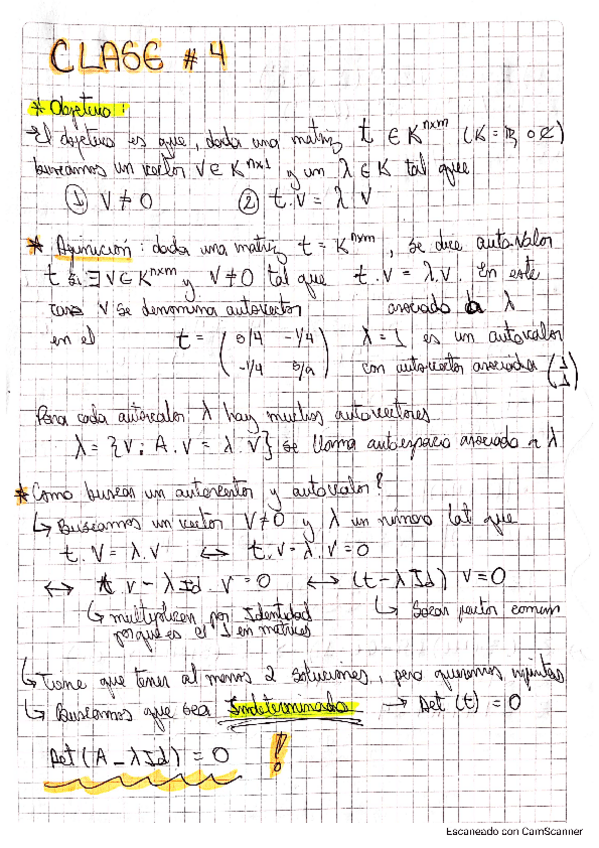 CLASE # 4
* Objetivo:
El objetivo es que, dada una matriz t ∈ K^nxm (K = ℝ o ℂ)
buscamos un vector V ∈ K^nx1 y un λ ∈ K tal que
① V ≠ 0 ② t.V = λ V
* Definición: dada una matriz t = K^nxm, se dice autovalor
t si ∃ V ∈ K^nxm y V ≠ 0 tal que t.V = λ.V. En este
caso V se denomina autovector asociado a λ
en el t = ( 5/4 -1/4 λ = 1 es un autovalor
-1/4 5/4 ) con autovector asociado (1 1)
Para cada autovalor λ hay muchos autovectores
λ = {V: A.V = λ V} se llama autoespacio asociado a λ
* Como buscar un autovector y autovalor?
↳ Buscamos un vector V ≠ 0 y λ un número tal que
t.V = λ.V ↔ t.V - λ.V = 0
↔ t.V - λ Id.V = 0 ↔ (t - λ Id) V = 0
↳ multiplican por Identidad ↳ Sacar factor común
porque es el 1 en matrices
↳ Tiene que tener al menos 2 soluciones, pero queremos infinitas
↳ Buscamos que sea Indeterminado → Det (t) = 0
Det (A - λ Id) = 0 !
Escaneado con CamScanner